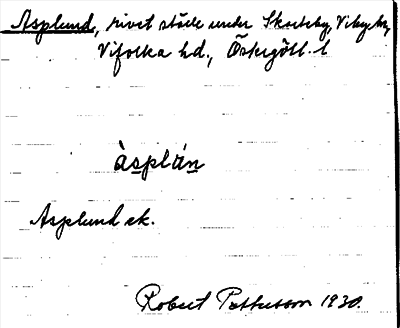 Asplund, rivet ställe under Skorteby, Viby sn,
Vifolka hd., Östergötl. l
àsplán
Asplund ek.
Robert Pettersson 1930.